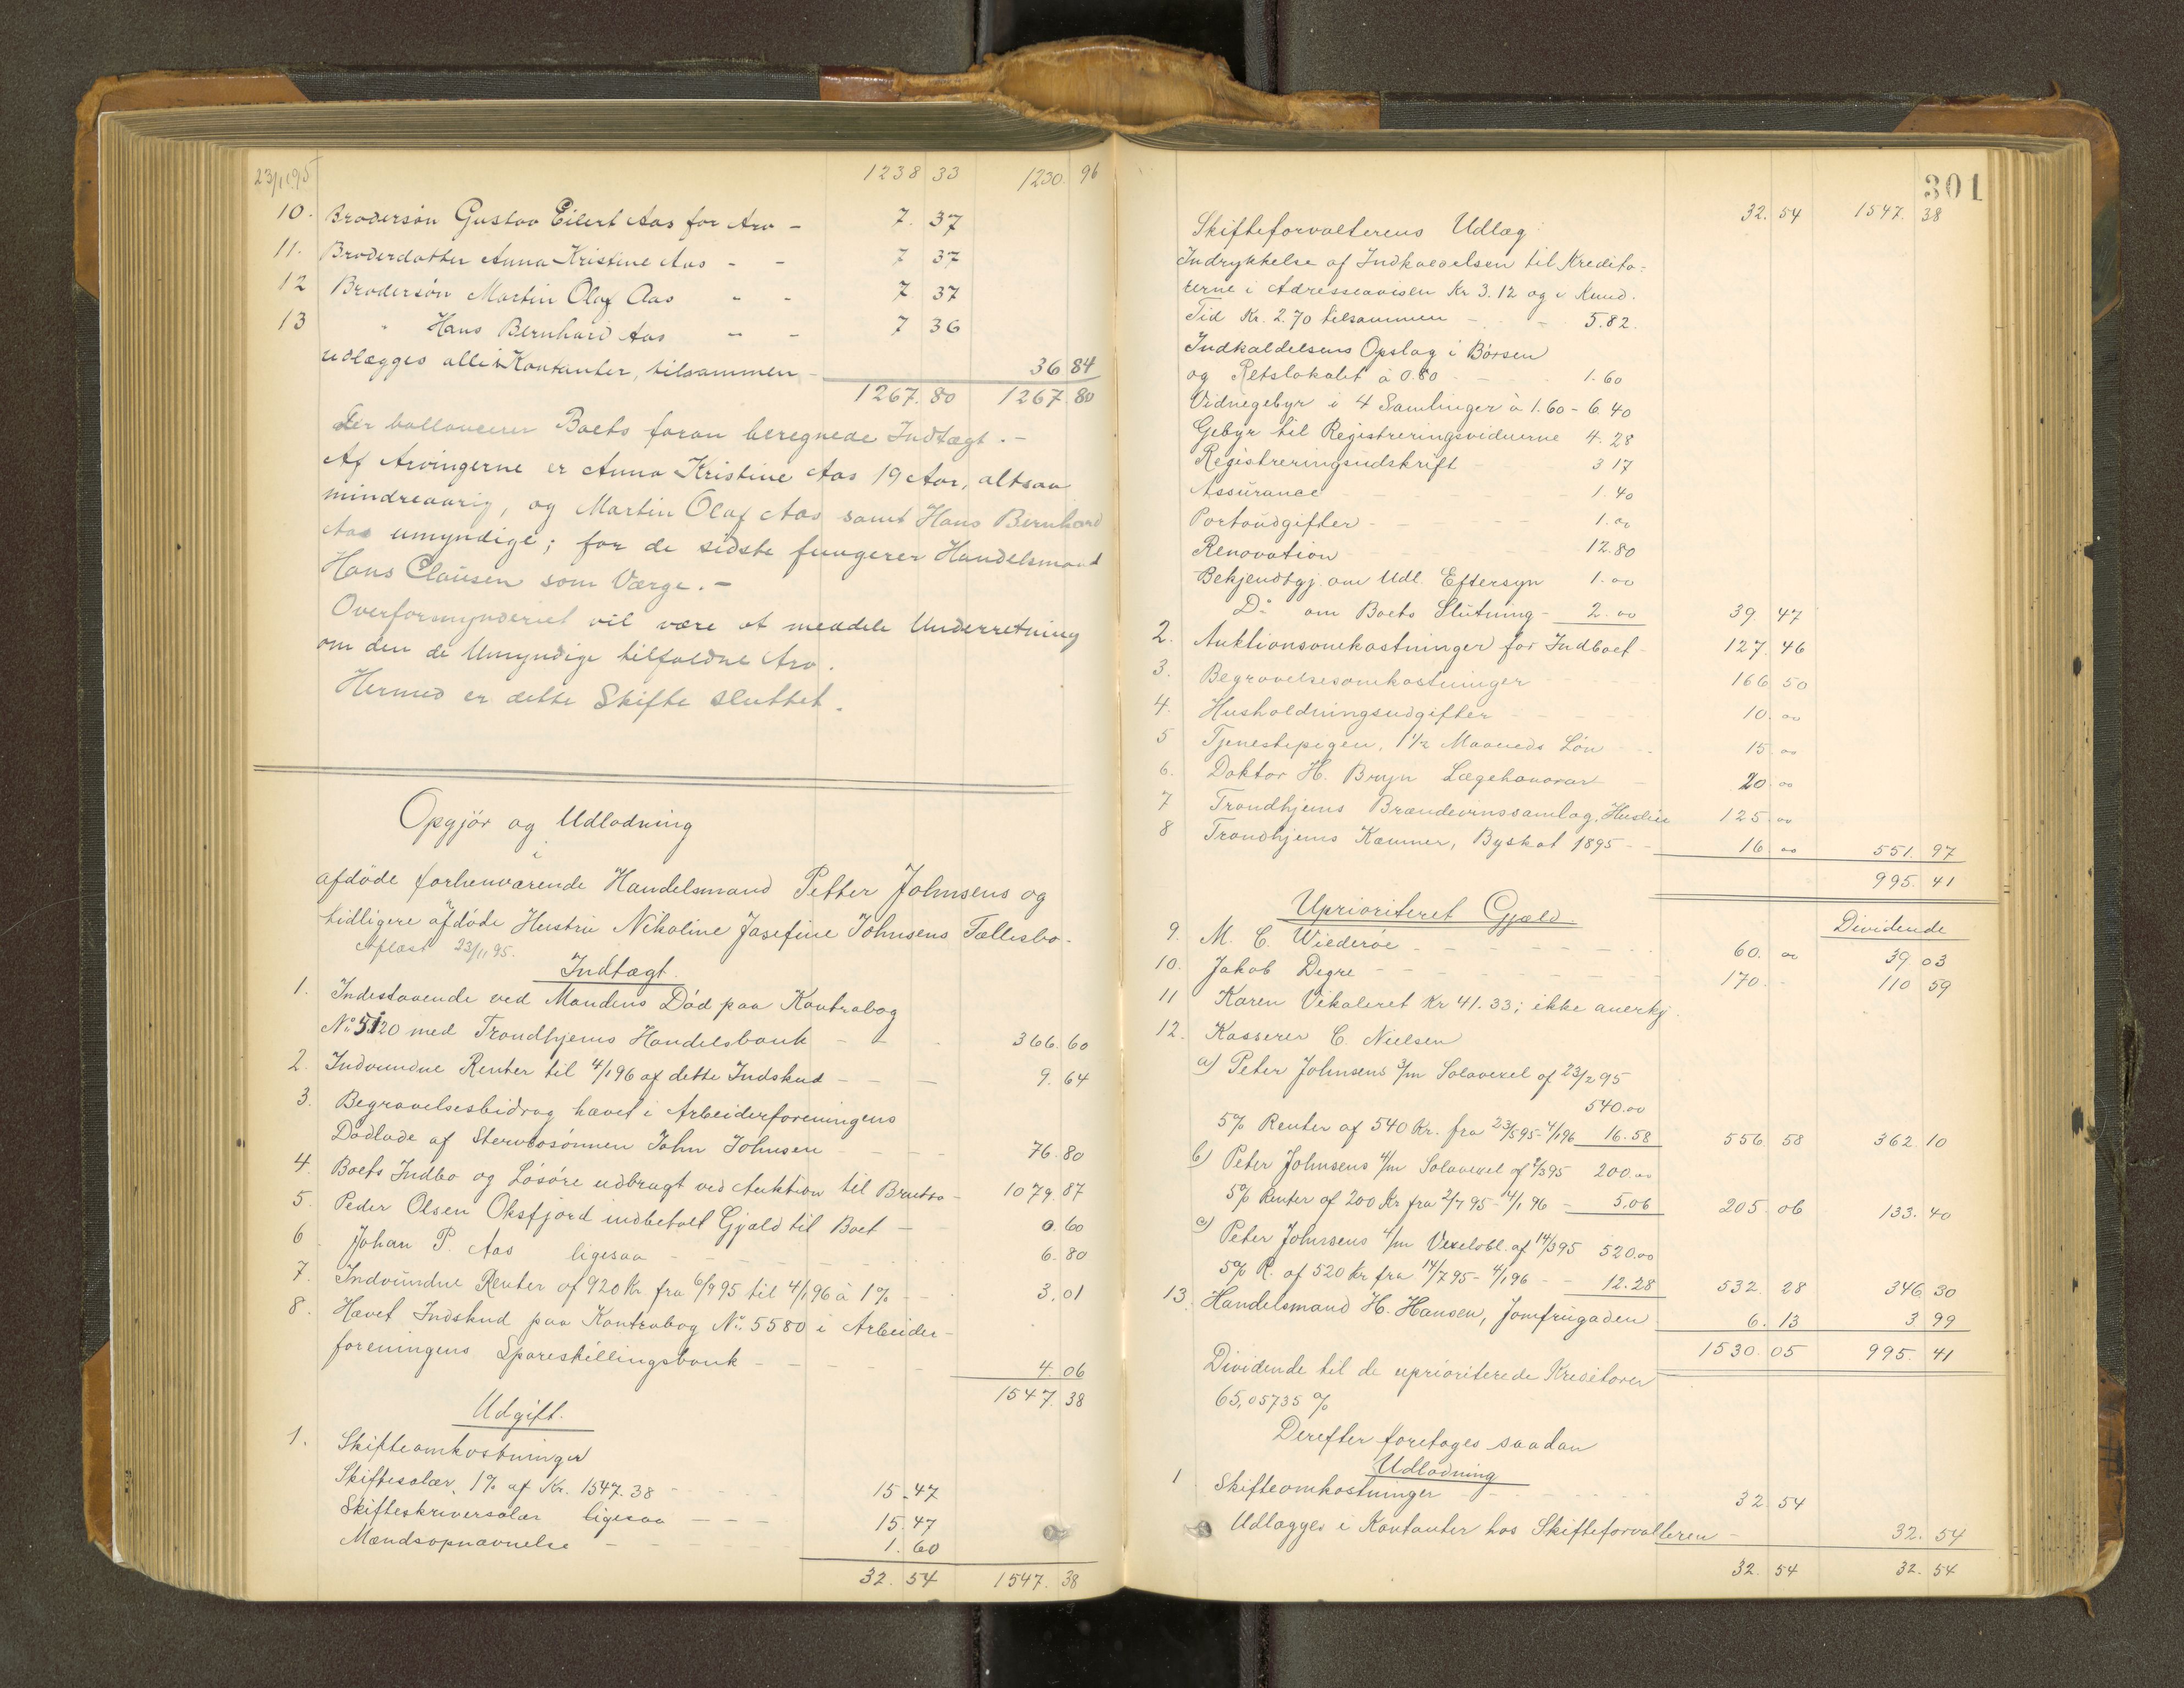 23/11 95 1238 33 1230. 96
10. Brodersön Gustav Eilert Aas for Arv - 7. 37
11. Broderdatter Anna Kristine Aas - - 7 37
12 Brodersön Martin Olaf Aas - - 7 37
13 " Hans Bernhard Aas - - 7 36
udlægges alle i Kontanter, tilsammen - 36 84
1267. 80 1267. 80
der ballancerer Boets foran beregnede Indtægt. -
Af Arvingerne er Anna Kristine Aas 19 Aar, altsaa
mindreaarig, og Martin Olaf Aas samt Hans Bernhard
Aas umyndige; for de sidste fungerer Handelsmand
Hans Clausen som Værge. -
Overformynderiet vil være at meddele Underretning
om den de Umyndige tilfaldne Arv.
Hermed er dette Skifte sluttet.
Opgjör og Udlodning
i
afdöde forhenværende Handelsmand Petter Johnsens og
tidligere afdöde Hustru Nikoline Josefine Johnsens Fællesbo.
Aflæst 23/11 95.
Indtægt.
1. Indestaaende ved Mandens Död paa Kontrabog
No. 5120 med Trondhjems Handelsbank - - - 366. 60
2. Indvundne Renter til 4/1 96 af dette Indskud - - - 9. 64
3. Begravelsesbidrag hævet i Arbeiderforeningens
Dödlade af Stervbosönnen John Johnsen - - - 76. 80
4. Boets Indbo og Lösöre udbragt ved Auktion til Brutto - 1079. 87
5. Peder Olsen Oksfjord indbetalt Gjæld til Boet - - 0. 60
6. Johan P. Aas ligesaa - - - 6. 80
7. Indvundne Renter af 920 Kr. fra 6/9 95 til 4/1 96 à 1% - - 3, 01
8. Hævet Indskud paa Kontrabog No. 5580 i Arbeider-
foreningens Spareskillingsbank - - - 4. 06
1547. 38
Udgift.
1. Skifteomkostninger
Skiftesalær, 1% af Kr. 1547. 38 - - - 15. 47
Skifteskriversalær ligesaa - - - 15. 47
Mændsopnævnelse - - - 1. 60
32. 54 1547. 38
301
32. 54 1547. 38
Skifteforvalterens Udlæg
Indrykkelse af Indkaldelsen til Kredito-
rerne i Adresseavisen Kr 3. 12 og i Kund.
Tid Kr. 2. 70 tilsammen - - - 5. 82.
Indkaldelsens Opslag i Börsen
og Retslokalet à 0. 80 - - - 1. 60
Vidnegebyr i 4 Samlinger à 1. 60 - 6. 40
Gebyr til Registreringsvidnerne 4. 28
Registreringsudskrift - 3 17
Assurance - - - 1. 40
Portoudgifter - - - 1. 00
Renovation 12. 80
Bekjendtgj. om Udl. Eftersyn 1. 00
Do. om Boets Slutning - 2. 00 39 47
2. Auktionsomkostninger for Indboet - 127. 46
3. Begravelsesomkostninger - - - 166 50
4. Husholdningsudgifter - - - 10. 00
5 Tjenestepigen, 1 1/2 Maaneds Lön - - 15. 00
6. Doktor H. Bryn Lægehonorar - 20. 00
7 Trondhjems Brændevinssamlag, Husleie 125 00
8 Trondhjems Kæmner, Byskat 1895 - - 16 00 551. 97
995. 41
Uprioriteret Gjæld. Dividende
9. M. C. Wiederöe - - - 60. 00 39 03
10. Jakob Digre - - - 170. - 110 59
11 Karen Vikaleret Kr 41. 33; ikke anerkj.
12. Kasserer C. Nielsen
a) Peter Johnsens 3/m Solavexel af 23/2 95
540. 00
5% Renter af 540 Kr. fra 23/5 95 - 4/1 96 16. 58 556 58 362. 10
b) Peter Johnsens 4/m Solavexel af 2/3 95 200. 00
5% Renter af 200 Kr fra 2/7 95 - 4/1 96 - 5,06 205. 06 133. 40
c) Peter Johnsens 4/m Vexelobl. af 14/3 95 520. 00
5% R. af 520 Kr fra 14/7 95 - 4/1 96 - - 12. 28 532. 28 346 30
13. Handelsmand H. Hansen, Jomfrugaden 6. 13 3. 99
1530. 05 995. 41
Dividende til de uprioriterede Kreditorer
65,05735 %
Derefter foretages saadan
Udlodning
1 Skifteomkostninger - - - 32 54
Udlægges i Kontanter hos Skifteforvalteren - 32. 54
32. 54 32. 54